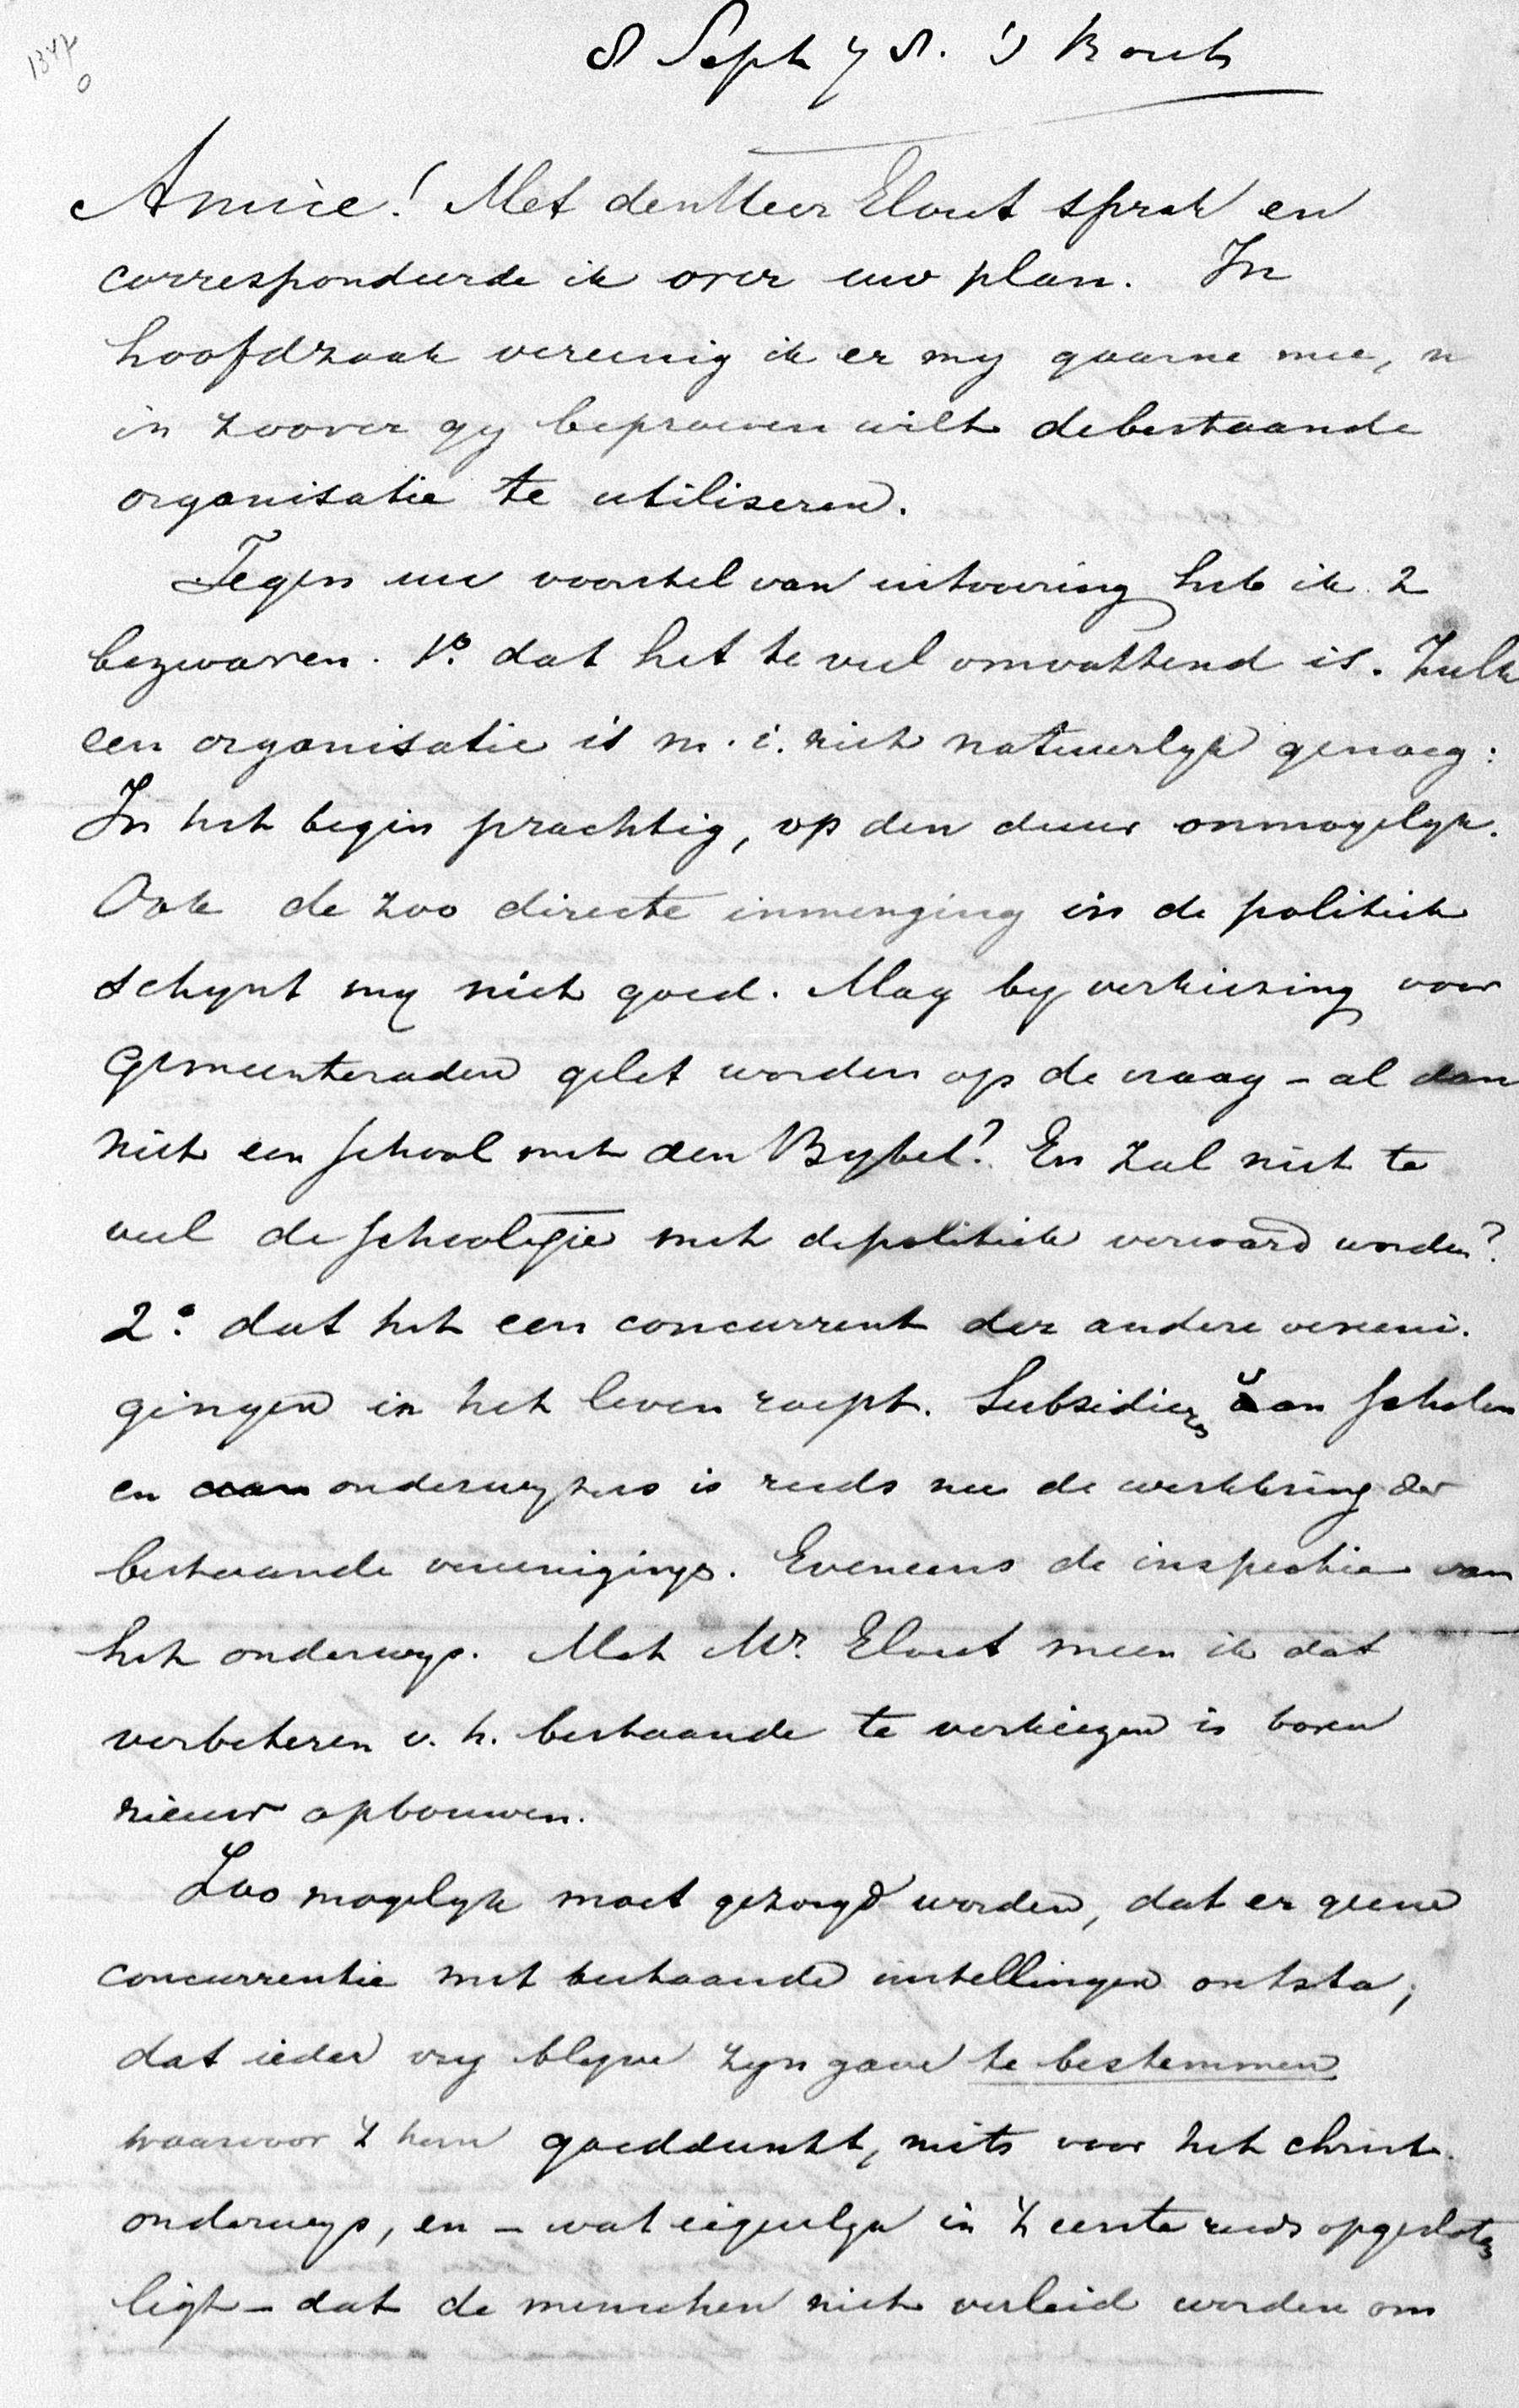 8 Sept 78. 's Bosch
Amice! Met den Heer Elout sprak en
correspondeerde ik over uw plan. In
hoofdzaak vereenig ik er my gaarne mee, n
in zoover gy beproeven wilt de bestaande
organisatie te utiliseren.
Tegen uw voorstel van uitvoering heb ik 2
bezwaren. 1o. dat het te veel omvattend is. Zulk
een organisatie is m.i. niet natuurlyk genoeg:
In het begin prachtig, op den duur onmogelyk.
Ook de zoo directe inmenging in de politiek
schynt my niet goed. Mag by verkiezing voor
Gemeenteraden gelet worden op de vraag - al dan
niet een school met den Bybel? En zal niet te
veel de schoolquestie met de politiek verward worden?
2o. dat het een concurrent der andere vereeni-
gingen in het leven roept. Subsidieren van scholen
en van onderwyzers is reeds nu de werkkring der
bestaande vereenigings. Eveneens de inspectie van
het onderwys. Met Mr. Elout meen ik dat
verbeteren v. h. bestaande te verkiezen is boven
nieuw opbouwen.
Zoo mogelyk moet gezorgd worden, dat er geene
concurrentie met bestaande instellingen ontsta;
dat ieder vry blyve zyn gave te bestemmen
waarvoor 't hem goeddunkt, mits voor het christ.
onderwys, en - wat eigenlyk in 't eerste reeds opgesloten
ligt - dat de menschen niet verleid worden om